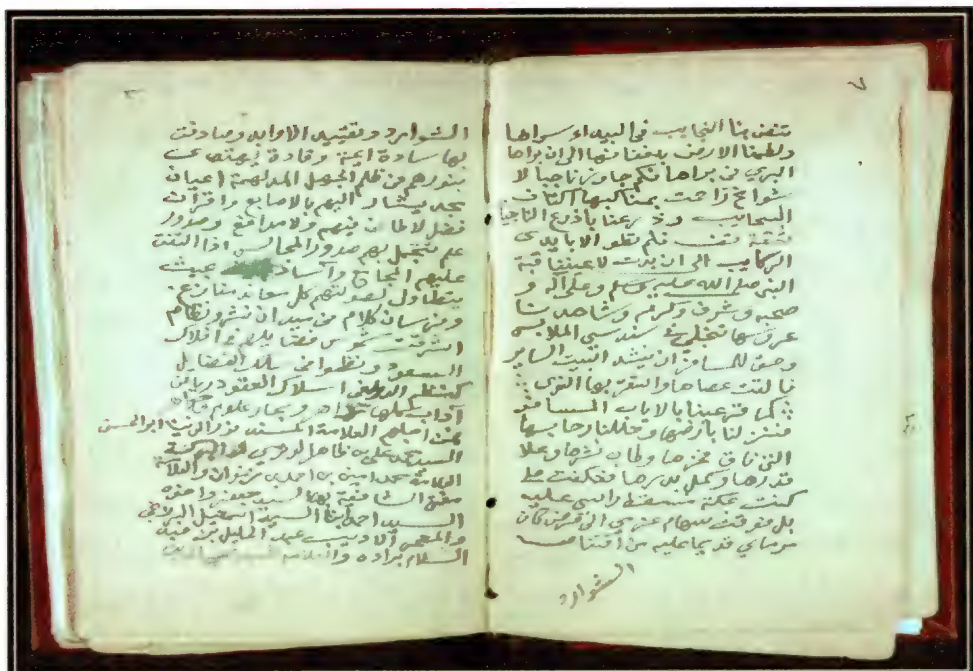 تنفن بنا النجايب في البيداء سراها
ولطمنا الارض بلفننا الى ان براها
البري من براها فكم جاوزنا جبالا
شوامخ زاحمت بمناكبها اكتاف
السحايب وذرعنا باذرع الناجيات
شقة فلم تطو الا بايدى
الركايب الى ان بدت لاعيننا قبة
النبي صلى الله عليه وسلم وعلى آله و
صحبه وشرف وكرم وشاهدنا
عروسها تنجلى في سندسي الملابس
وحق للمسافر ان ينشد البيت الساير
فالقت عصاها واستقر بها النوى
كما قر عينا بالاياب المسافر
فنزلنا بارضها وحللنا رحابها
التي فاق فخرها وطاب نشرها وعلا
قدرها وكمل بدرها فعكفت على ما
كنت بمكة مسقط راسي عليه
بل فوقت سهام عزمي الى غرض كان
مرماي قديما عليه من اقتناص
الشوارد
الشوارد وتقييد الاوابد وصادفت
بها سادة ايمة وقادة يهتدى
بنورهم من ظلم الجهل المدلهمة اعيان
مجد يشار اليهم بالاصابع واقران
فضل لا طاعن فيهم ولا مدافع وصدور
علم تتجمل بهم صدور المجالس اذا التفت
عليهم المجامع وآساد بحث
يتطاول لصولتهم كل معاند منازع
وفرسان كلام في ميدان نثر ونظام
اشرقت شموس فضايلهم في افلاك
السعود ونظموا في سلك الفضايل
كنظم الدر في اسلاك العقود رياض
آداب وبحار علوم
فمن اجلهم العلامة المسند نور الدين ابو الحسن
السيد محمد علي بن ظاهر الوتري
العلامة محمد امين بن احمد بن رضوان والعلامة
مفتي الشافعية بها السيد جعفر واخوه
السيد احمد ابنا السيد اسمعيل البرزنجي
والمعمر الاديب عبد الجليل بن عبد
السلام براده والعلامة السيد